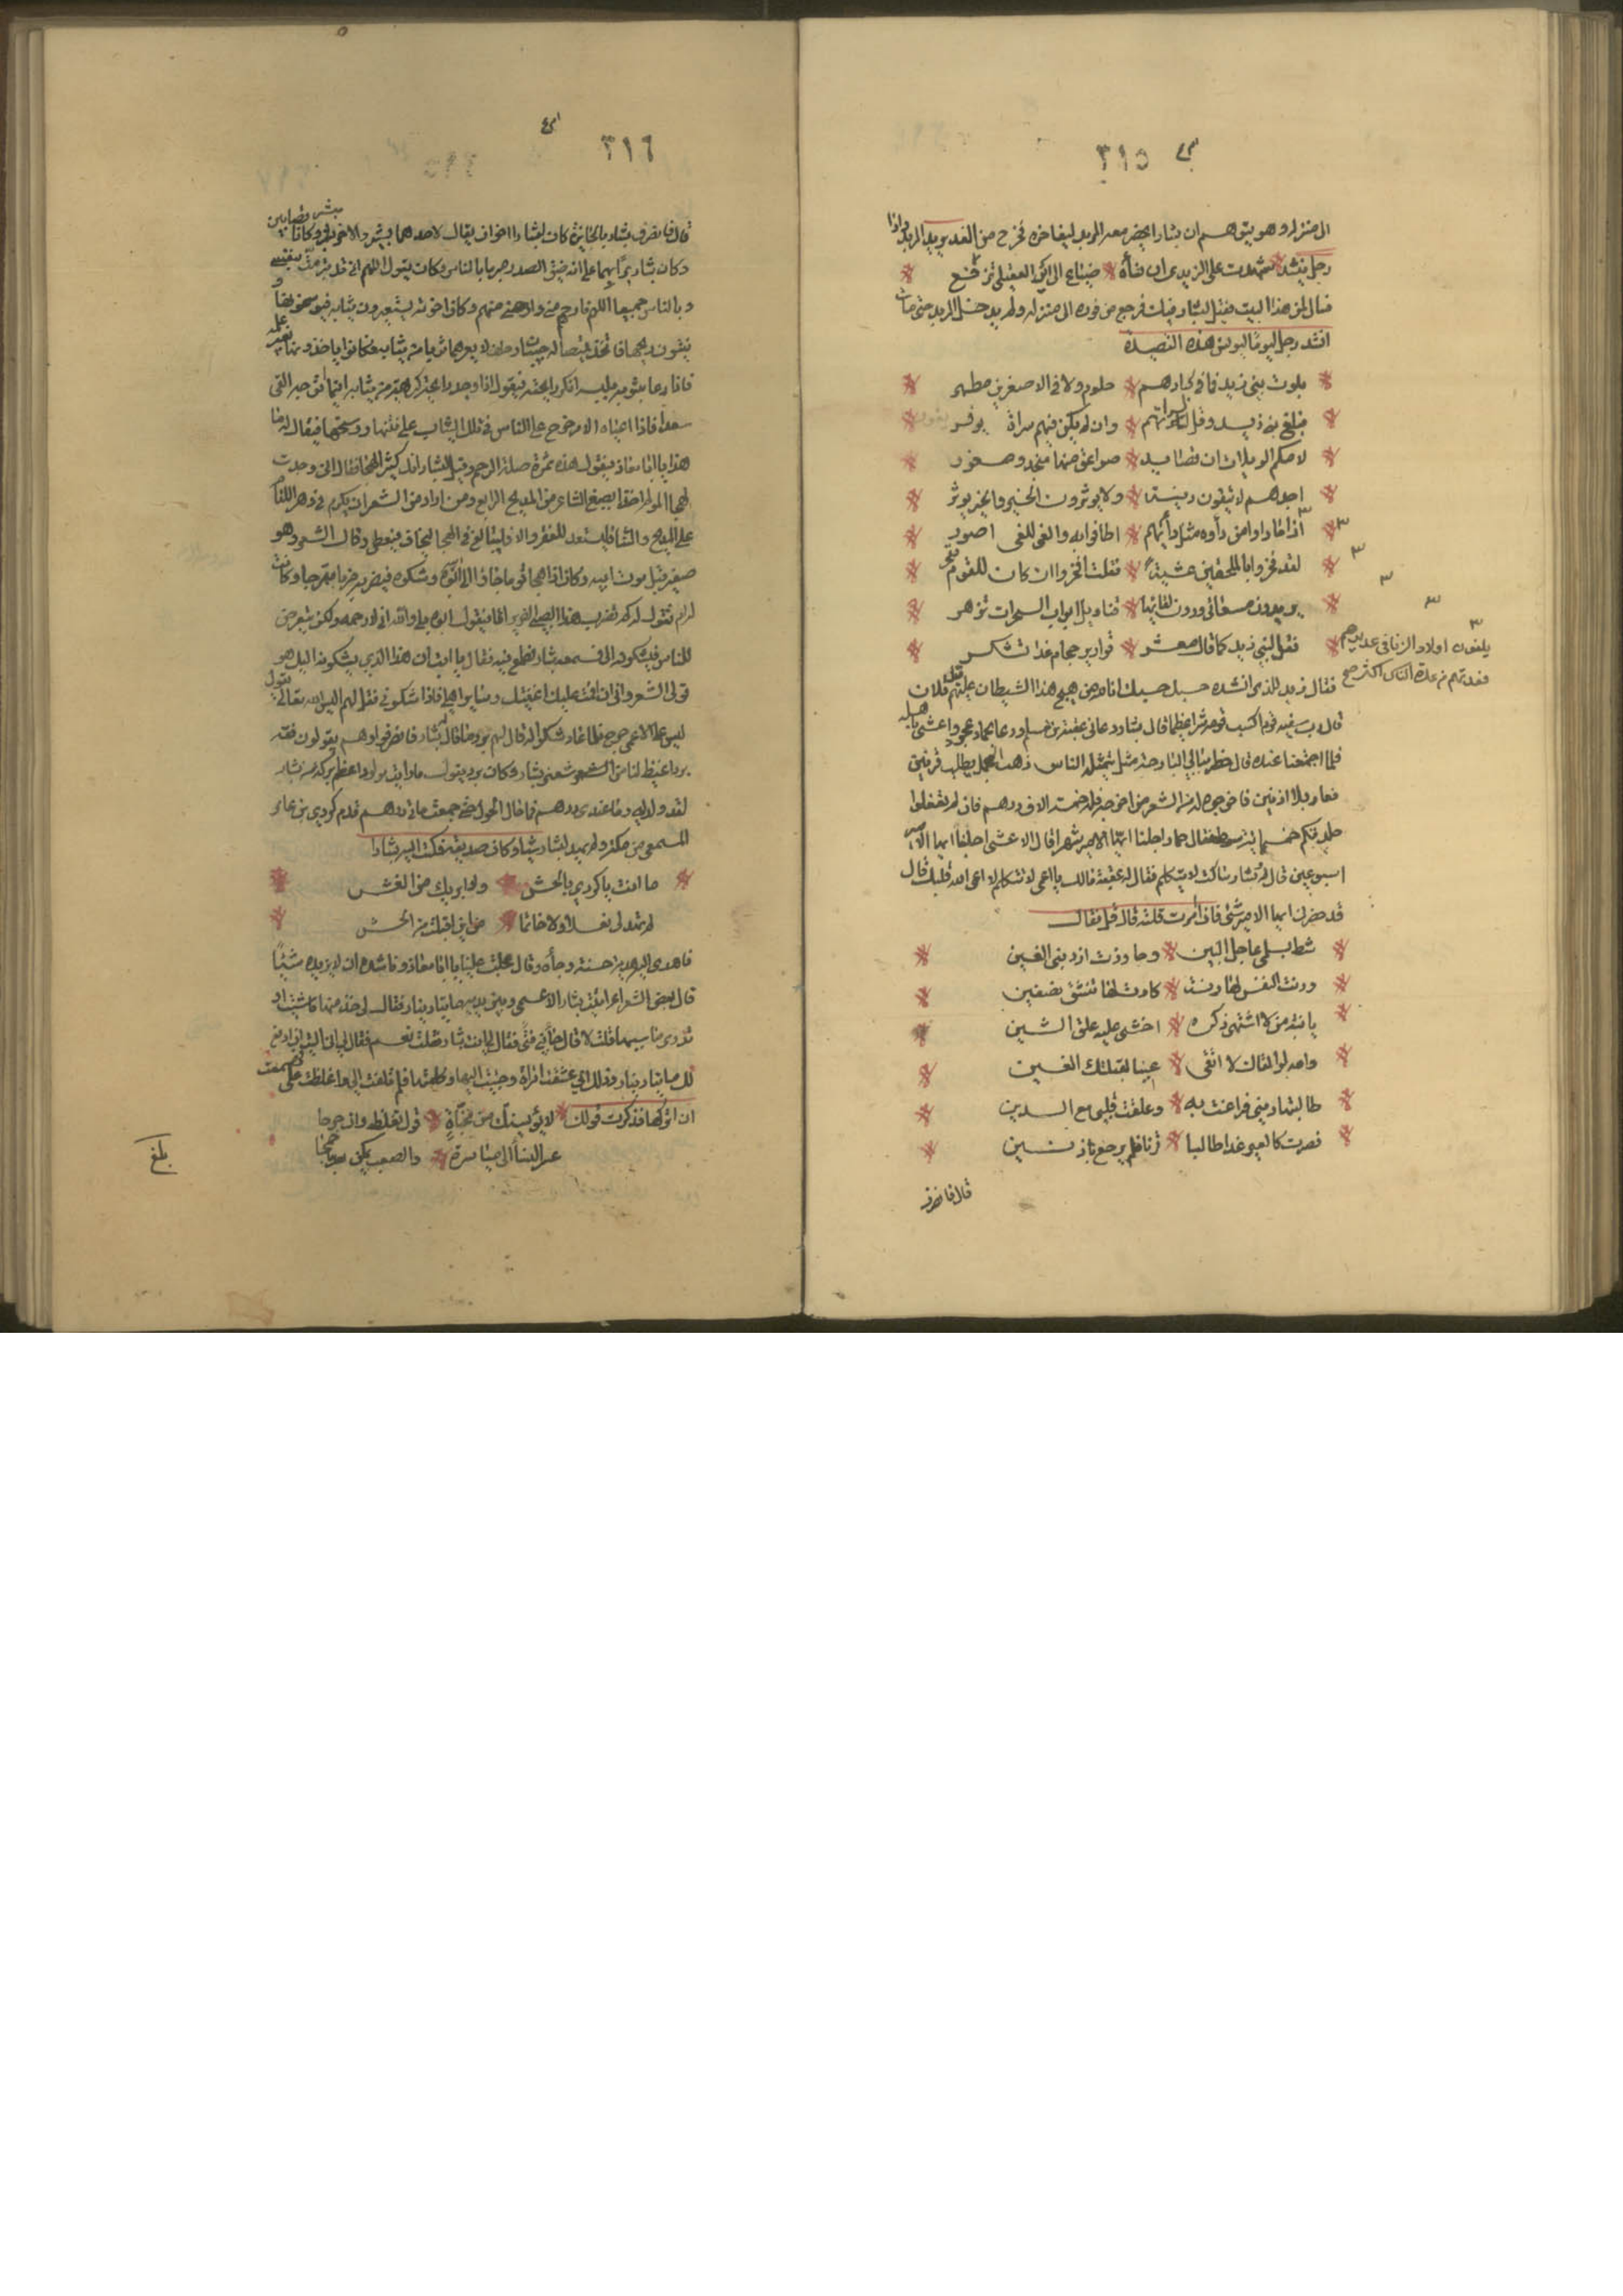 ٣١٥
الى منزله وهو يتوهم ان بشارا يحضر معه المربد ليفاخره فخرج من الغد يريد المربد واذا
رجل ينشد شهدت على الزيدي ان نساءه ضياع الى اير العقيلي تزفر
فسال لمن هذا البيت فقيل لبشار فيك فرجع من فوره الى منزله ولم يدخل المربد حتى مات
انشد رجل يونس هذه القصيدة
بلوت بني زيد فما في كبارهم حلوم ولا في الاصغرين مطهر
فابلغ بني زيد وقل لسراتهم وان لم يكن فيهم سراة يوقر
لامكم الويلات ان قصايدي صواعق منها منجد ومغور
اجدهم لا يتقون دنية ولا يوثرون الخير والخير يوثر
اذا ما راوا من دأبه مثل دأبهم اطافوا به والغي للغي اصور
لقد فخروا بالملحقين عشية فقلت افخروا ان كان للقوم مفخر
يريدون مسعاتي ودون لقائها قناديل ابواب السموات تزهر
فقل لبني زيد كما قال معشر قوارير حجام غدا تتكسر
يلفون اولاد الزنا في عديدهم
فعدتهم من عدة الناس اكثر صح
فقال يونس للذي انشده حسبك حسبك انا من هيج هذا الشيطان عليهم قيل فلان
قال رب سفيه قوم اكسب قومه شرا عظيما قال بشار دعاني عقبة بن سلم ودعا بحماد عجرد واعشى باهلة
فلما اجتمعنا عنده قال خطر ببالي البارحة مثل يتمثله الناس ذهب الحمار يطلب قرنين
فعاد بلا اذنين فاخرجوه لي من الشعر من اخرجه فله خمسة الاف درهم فان لم تفعلوا
جلدتكم خمسماية سوط فقال حماد اجلنا ايها الامير شهرا قال الاعشى اجلنا ايها الامير
اسبوعين قال وبشار ساكت لا يتكلم فقال له عقبة مالك يا اعمى لا تتكلم لا اعمى الله قلبك قال
قد حضرني ايها الامير شئ فان امرت قلته قال قل فقال
شط بسلمى عاجل البين وجاورت اسد بني القين
ورنت النفس لها رنة كادت لها تنشق نصفين
يا بنة من لا اشتهي ذكره اخشى عليه علق الشين
والله لو القاك لا اتقي عينا لقبلتك الفين
طالبتها ديني فراغت به وعلقت قلبي مع الدين
فصرت كالعير غدا طالبا قرنا فلم يرجع باذنين
قال فانصرف
٣١٦
قال فانصرف بشار بالجايزة كان لبشار اخوان يقال لاحدهما بشر والاخر بشير وكانا قصابين
وكان بشار بارا بهما على انه ضيق الصدر متبرما بالناس وكان يقول اللهم اني قد تبرمت بنفسي
وبالناس جميعا اللهم فارحني منهم وكان اخوته يستعيرون ثيابه فيوسخونها
هذا يا ابا معاذ فيقول هذه ثمرة صلة الرحم وقيل لبشار انك كثير الهجا فقال اني وجدت
الهجا المولم اخذ بضبع الشاعر من المديح الرايع ومن اراد من الشعرا ان يكرم في دهر اللئام
على المديح والثنا فليستعد للفقر والا فليبالغ في الهجا ليخاف فيعطى وقال الشعر وهو
صغير قبل موت ابيه وكان اذا هجا قوما جاؤا الى ابيه وشكوه فيضربه ضربا مبرحا وكانت
امه تقول له كم تضرب هذا الصبي الضرير اما ترحمه فيقول بلى والله اني لارحمه ولكنه يتعرض
للناس فيشكونه الي فسمعه بشار فطمع فيه فقال يا ابت ان هذا الذي يشكونه اليك هو
قولي الشعر واني ان اتممت عليك اغنيتك وساير اهلي فاذا شكوني فقل لهم اليس الله تعالى يقول
ليس على الاعمى حرج فلما عادوا شكوا له قال لهم برد ما قال بشار فانصرفوا وهم يقولون فقه
برد اغيظ لنا من شعر بشار وكان برد يقول ما رايت مولودا اعظم بركة من بشار
لقد ولد لي وما عندي درهم فما حال الحول حتى جمعت مائة درهم قدم كردي بن عامر
المسمعي من مكة ولم يهد لبشار شيا وكان صديقه فكتب اليه بشار
ما انت يا كردي بالهش ولا ابريك من الغش
لم تهدنا نعلا ولا خاتما من اين اقبلت من الحش
فاهدى اليه هدية حسنة وجاه وقال عجلت علينا يا ابا معاذ وناشده ان لا يزيده شيئا
قال بعض الشعرا اتيت بشار الاعمى وبين يديه مايتا دينار فقال لي خذ منها ما شئت او
تدري ما سببها قلت لا قال جاني فتى فقال لي انت بشار فقلت نعم فقال لي اني اليت ان ادفع
لك مايتا دينار وذلك اني عشقت امراة وجئت اليها وكلمتها فلم تلتفت الي واغلظت علي فهممت
ان اتركها فذكرت قولك لا يؤيسنك من مخبأة قول تغلظه وان جرحا
عسر النسا الى مياسرة والصعب يمكن بعد ما جمحا
بلغ